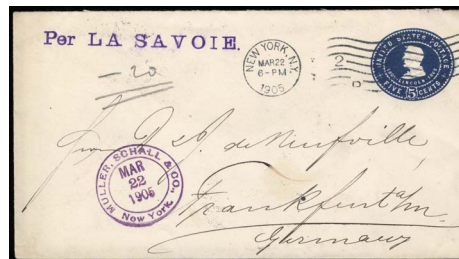 Per LA SAVOIE
NEW YORK, N.Y.
MAR 22
6-PM
1905
2
D
UNITED STATES POSTAGE
LINCOLN
FIVE 5 CENTS
- 20
J. de Neufville
MULLER, SCHALL & CO.,
MAR
22
1905
New York.
Frankfurt a/m.
Germany